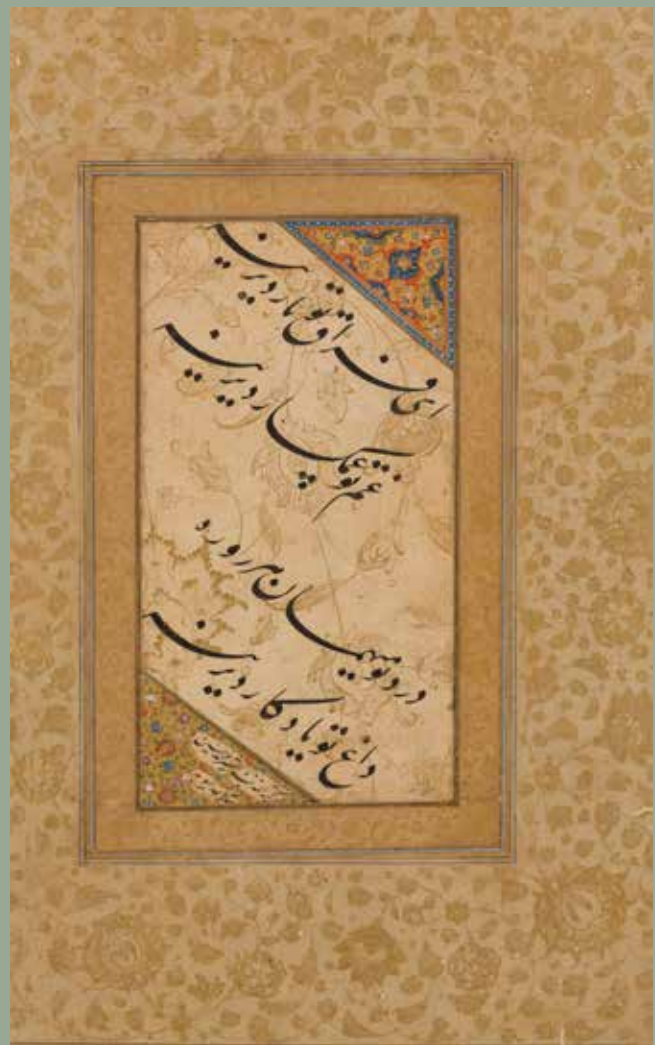 ای فراق تو یار دیرینه
غم تو غمگسار دیرینه
درد تو میهمان هر روزه
داغ تو یادگار دیرینه